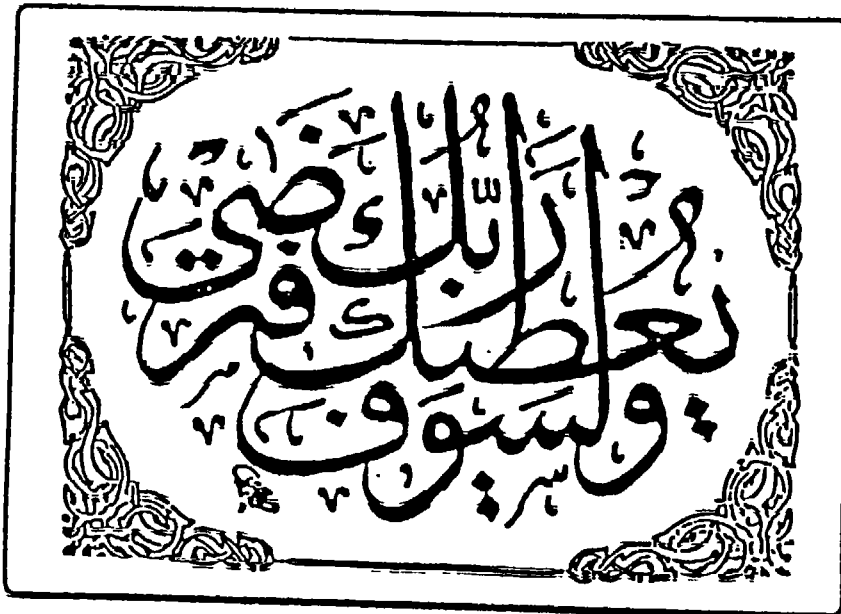 ولسوف
يعطيك
ربك فترضى